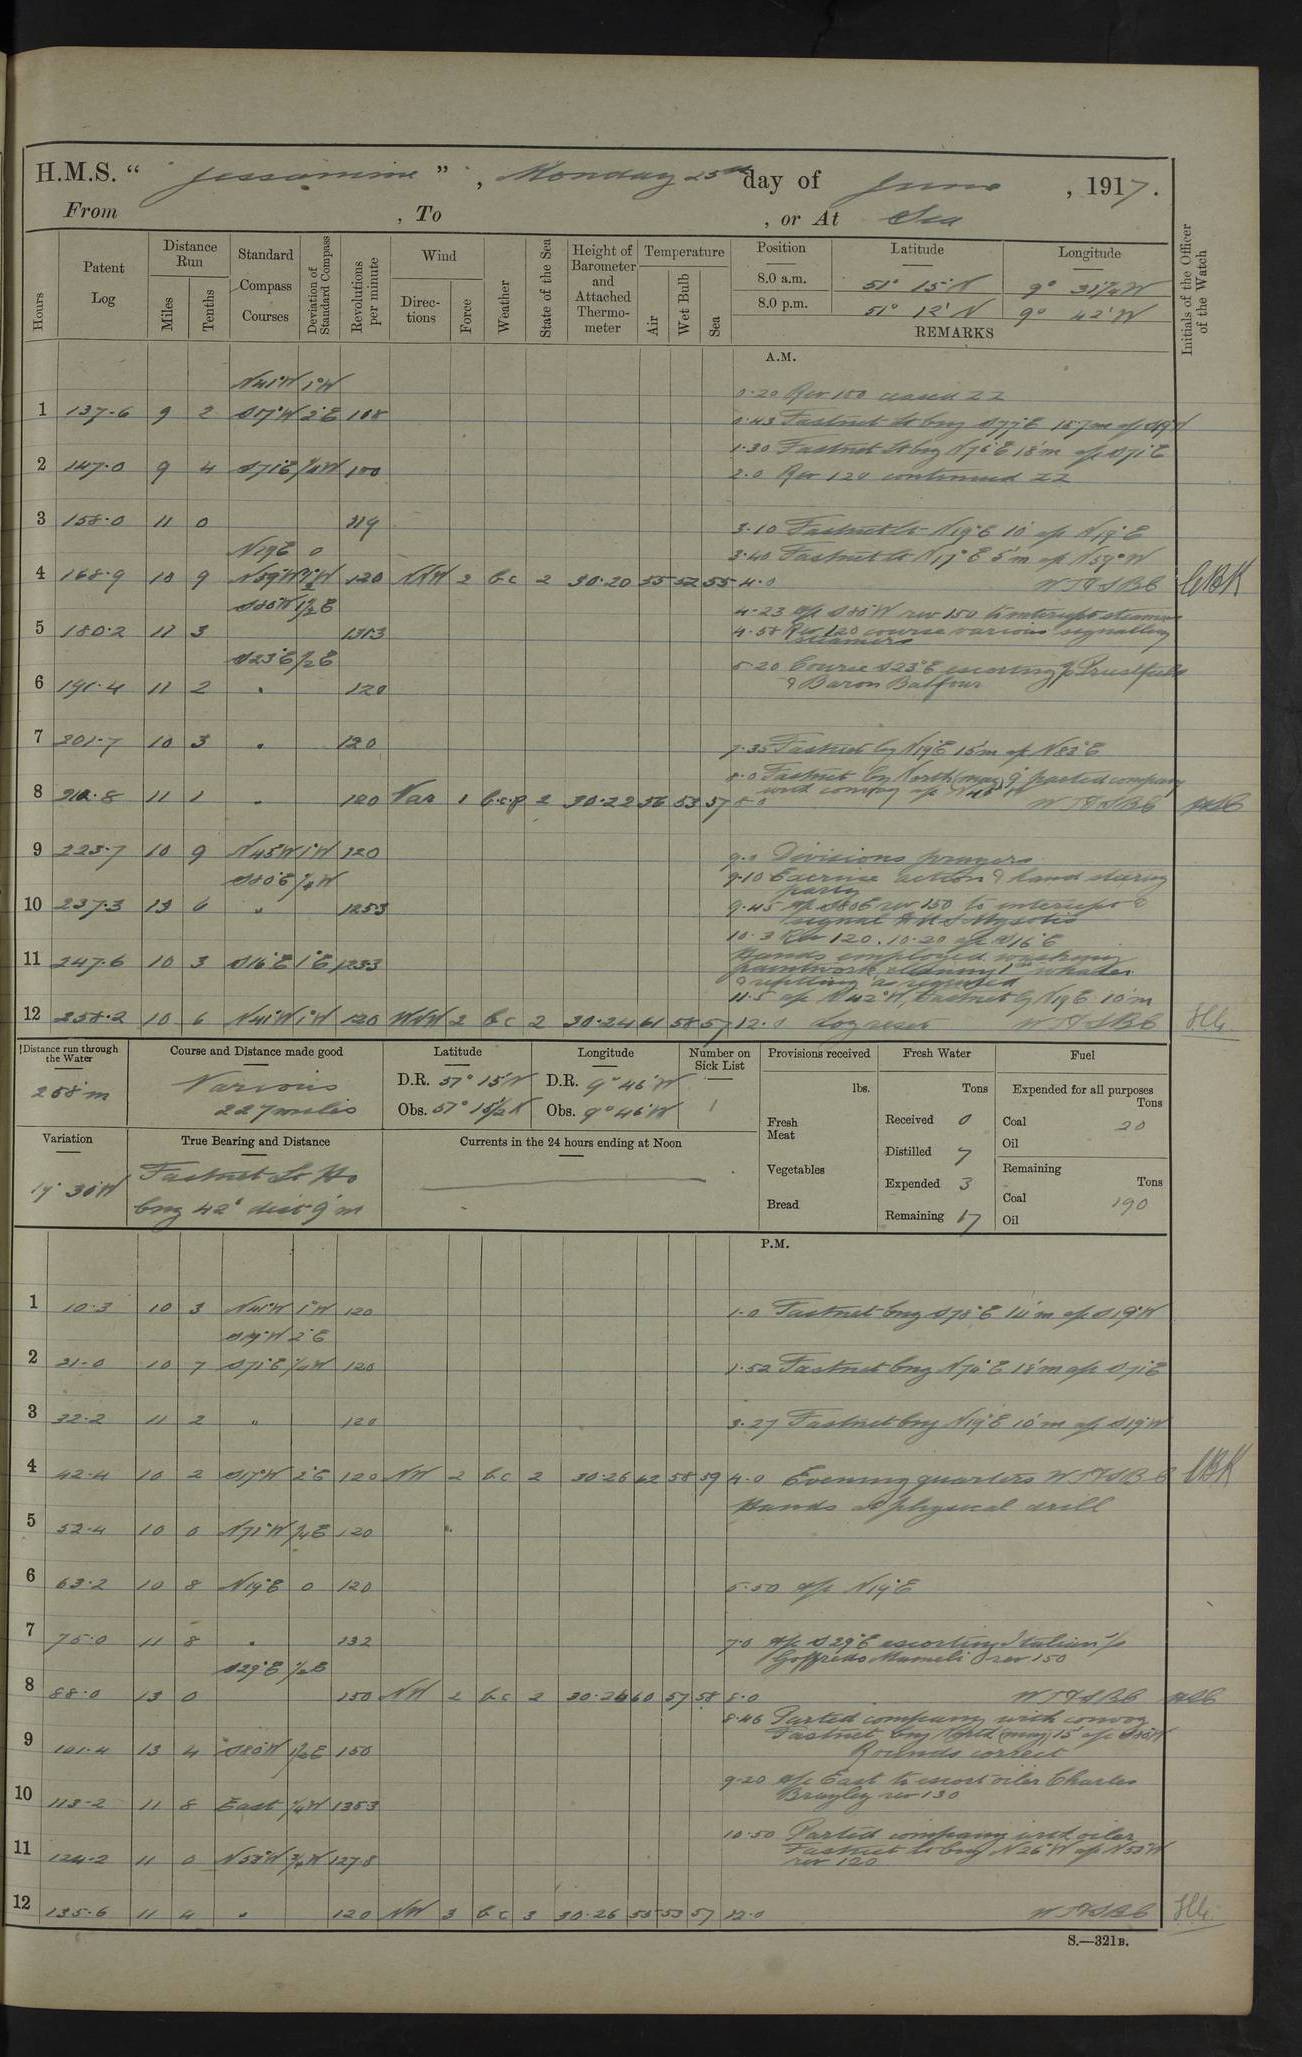 H.M.S. “ Jessamine ” , Monday 25th day of June , 1917.
From , To , or At Sea
Hours
Patent Log
Distance Run
Miles
Tenths
Standard Compass Courses
Deviation of Standard Compass
Revolutions per minute
Wind
Directions
Force
Weather
State of the Sea
Height of Barometer and Attached Thermometer
Temperature
Air
Wet Bulb
Sea
Position
Latitude
Longitude
8.0 a.m. 51° 15' N 9° 31¼' W
8.0 p.m. 51° 12' N 9° 42' W
REMARKS
Initials of the Officer of the Watch
A.M.
N41°W 1°W
0.20 Rev 150 ceased ZZ
1 137.6 9 2 S17°W 2°E 108
0.43 Fastnet Lt brg S77°E 15.7m a/c
1.30 Fastnet Lt brg N76°E 18'm a/c S71°E
2 147.0 9 4 S71°E ¼W 100
2.0 Rev 120 continued ZZ
3 158.0 11 0 119
3.10 Fastnet Lt N19°E 10' a/c N19°E
N19°E 0
3.40 Fastnet Lt N17°E 5'm a/c N59°W
4 168.9 10 9 N59°W 120 NNW 2 b.c 2 30.20 55 52 55 4.0 CBK
S85°W 1½E
4.23 a/c S85W rev 150 to intercept steamers
5 180.2 11 3 131.3
4.58 Rev 120 course various signalling
steamers
S23°E ½E
5.20 Course S23°E escorting
& Baron Balfour
6 191.4 11 2 " 120
7 201.7 10 3 " 120
7.35 Fastnet brg N19°E 15'm a/c N82°E
8.0 Fastnet brg North (mag) 9' parted company
with convoy a/c N45°W
8 212.8 11 1 " 120 Var 1 2 30.22 56 53 57 8.0
9 223.7 10 9 N45W 1°W 120
9.0 Divisions prayers
S80°E ¼W
9.10 Exercise action & hand steering
party
10 237.3 13 6 " 125.3
9.45 a/c S80E rev 150 to intercept &
signal HMS Myosotis
10.3 Rev 120. 10.20 a/c S16°E
11 247.6 10 3 S16°E 1°E 123.3
Hands employed washing
paintwork cleaning 1st whaler
& refitting as required
11.5 a/c N42°W, Fastnet brg N19E 10'm
12 258.2 10 6 N41°W 1°W 120 WNW 2 b.c 2 30.24 61 58 57 12.0 Log reset
Distance run through the Water
258'm
Course and Distance made good
Various
227 miles
Latitude
D.R. 51° 15' N
Obs. 51° 15½' N
Longitude
D.R. 9° 46' W
Obs. 9° 46' W
Number on Sick List
1
Variation
19° 30' W
True Bearing and Distance
Fastnet Lt Ho
brg 42° dist 9'm
Currents in the 24 hours ending at Noon
Provisions received
lbs.
Fresh Meat
Vegetables
Bread
Fresh Water
Tons
Received 0
Distilled 7
Expended 3
Remaining 17
Fuel
Expended for all purposes
Tons
Coal 20
Oil
Remaining
Tons
Coal 190
Oil
P.M.
1 10.3 10 3 N41°W 1°W 120 1.0 Fastnet brg S78°E 14'm a/c S19°W
S19°W 2°E
2 21.0 10 7 S71°E ¼W 120 1.52 Fastnet brg N74°E 18'm a/c S71°E
3 32.2 11 2 " 120 3.27 Fastnet brg N19°E 10'm a/c S19°W
4 42.4 10 2 S17°W 2°E 120 NW 2 b.c 2 30.26 62 58 59 4.0 Evening quarters CBK
Hands at physical drill
5 52.4 10 0 N71°W ¼E 120
6 63.2 10 8 N19°E 0 120 5.50 a/c N19°E
7 75.0 11 8 " 132 7.0 a/c S29°E escorting Italian s/s
Goffredo Mameli rev 150
S29°E ½E
8 88.0 13 0 150 NW 2 b.c 2 30.26 60 57 58 8.0
8.46 Parted company with convoy
Fastnet brg North (mag) 15' a/c S85°W
9 101.4 13 4 S85°W 1½E 150 Rounds correct
9.20 a/c East to escort oiler Charles
Brayley rev 130
10 113.2 11 8 East ¼W 135.3
10.50 Parted company with oiler
11 124.2 11 0 N53°W ¾W 127.8 Fastnet Lt brg N26°W a/c N53°W
rev 120
12 135.6 11 4 " 120 NW 3 b.c 3 30.26 55 53 57 12.0
S.—321B.